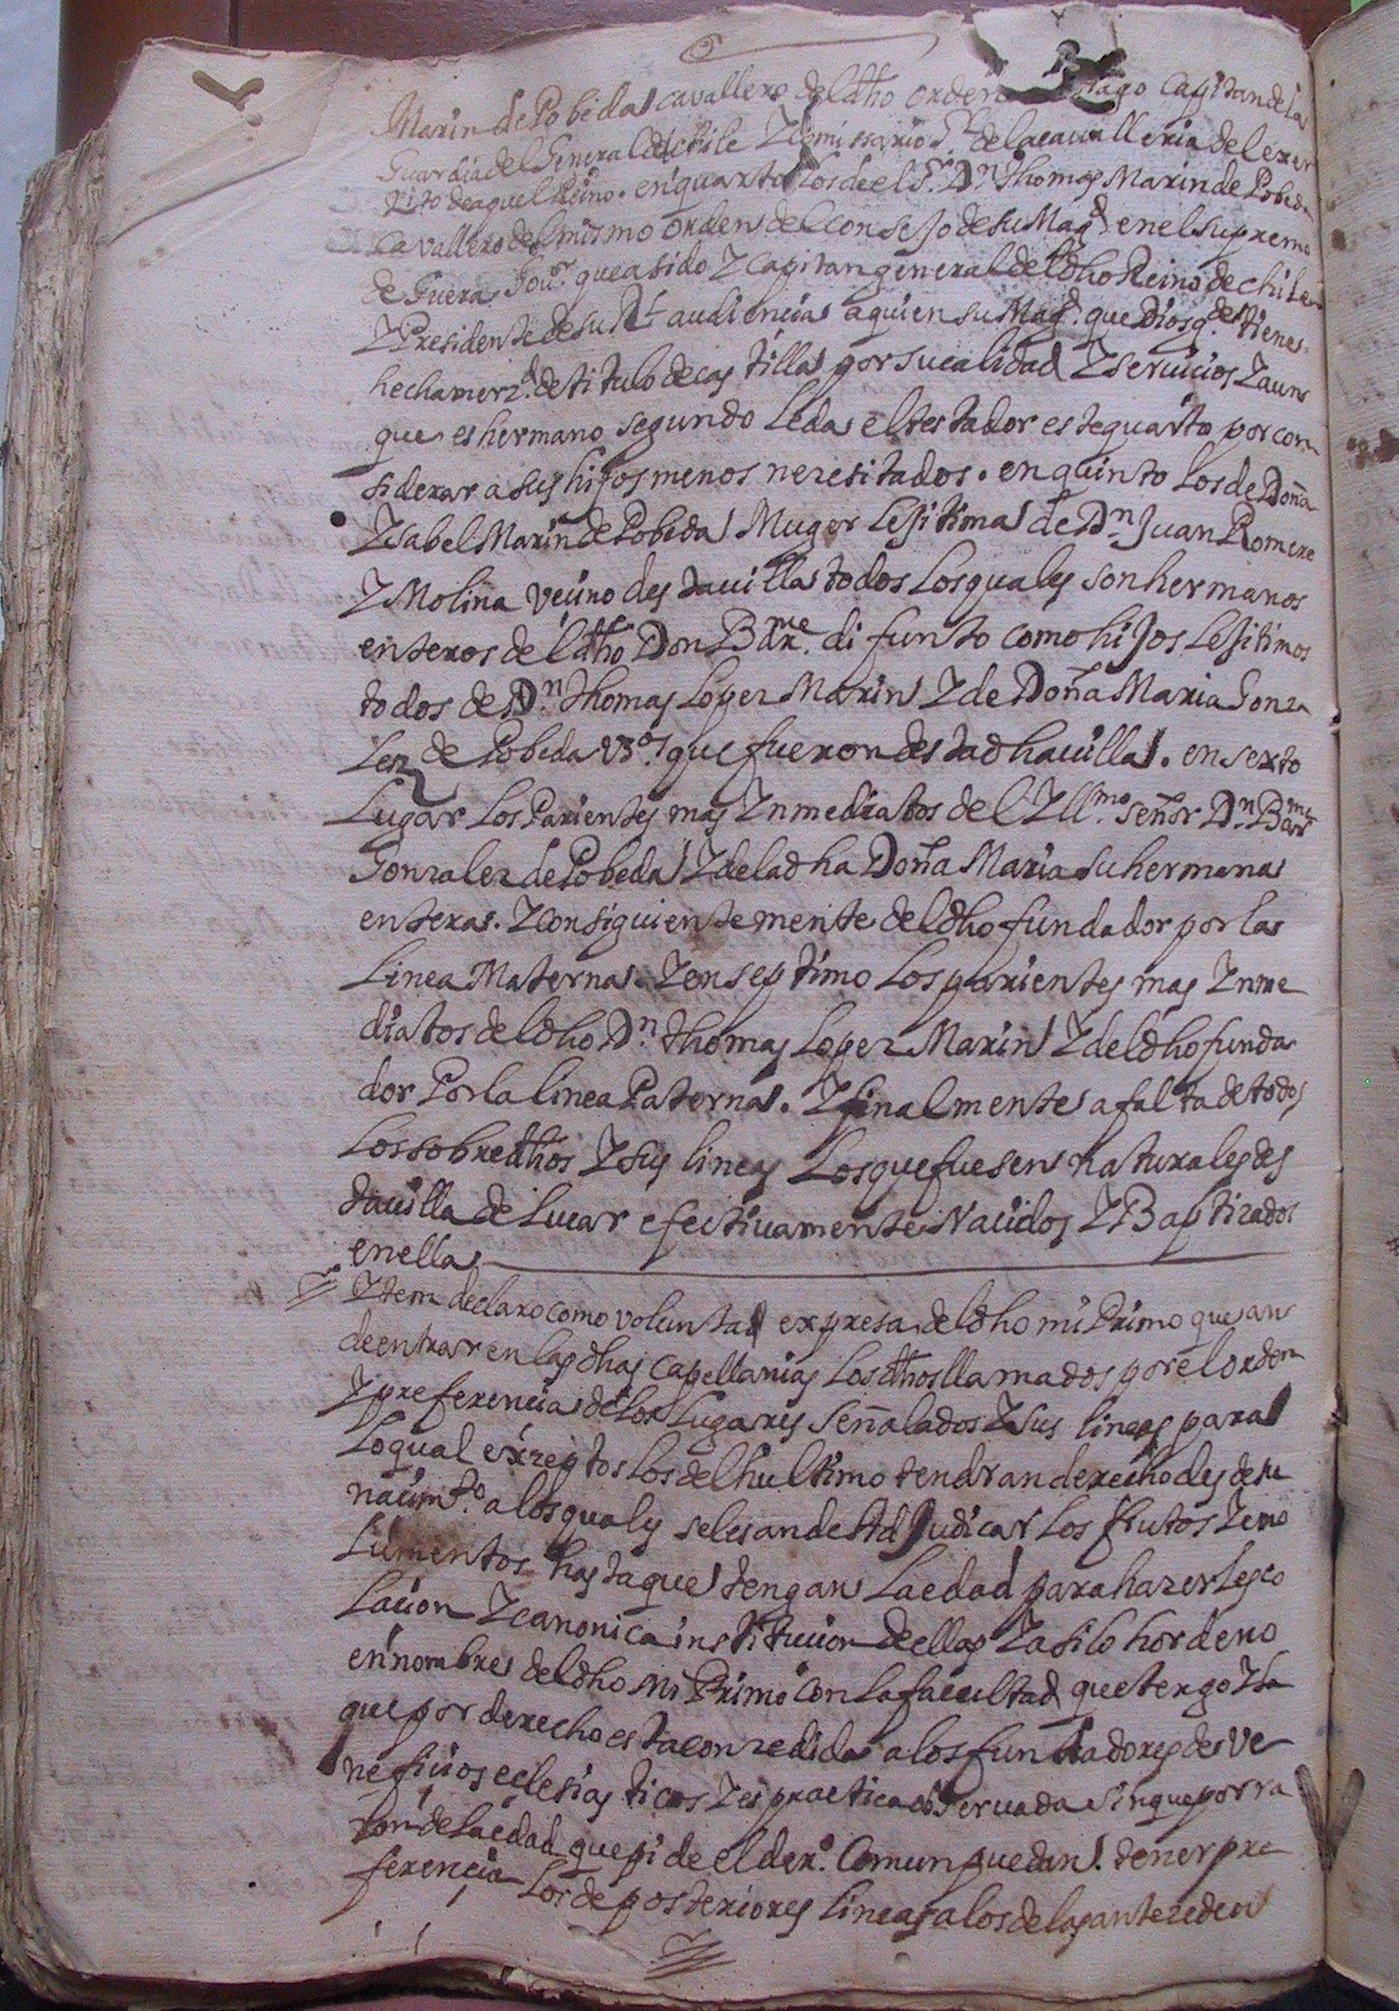 Marin de Pobeda cavallero del dho orden tiago Capitan de la
Guardia del General de chile Y Comissario Gl. de la cavalleria del exer
zito de aquel Reino. en quarto los de el Sr. Dn. Thomas Marin de Pobeda
Cavallero del mismo orden del consejo de su Magd. en el supremo
de Guera Gour. que a sido Y capitan general del dho Reino de chile
Y Presidente de su Rl. audiencia a quien su Magd. que Dios gde. tiene
hecha merzd. de titulo de castilla por su calidad Y servicios Y aun
que es hermano segundo le da el testador este quarto por con
siderar a sus hijos menos nezesitados. en quinto los de Doña
Ysabel Marin de Pobeda Muger lejitima de Dn. Juan Romero
Y Molina vecino desta villa todos los quales son hermanos
enteros del dho Don Barme. difunto como hijos lejitimos
todos de Dn. Thomas Lopez Marin Y de Doña Maria Gonza
lez de Pobeda vsos. que fueron desta dha villa. en sexto
lugar los Parientes mas Ynmediatos del Yllmo. señor Dn. Barme
Gonzalez de Pobeda Y de la dha Doña Maria su hermana
entera. Y consiguientemente del dho fundador por la
linea Materna. Y en septimo los parientes mas Ynme
diatos del dho Dn. Thomas Lopez Marin Y del dho funda
dor Por la linea Paterna. Y finalmente a falta de todos
los sobredhos Y sus lineas los que fuesen naturales des
ta villa de Lucar efectivamente Nacidos Y Baptizados
en ella
Ytem declaro como voluntad expresa del dho mi Primo que an
de entrar en las dhas capellanias los dhos llamados por el orden
Y preferencia de los lugares señalados Y sus lineas para
lo qual exzeptos los del hultimo tendran derecho desde su
nacimto. a los quales se les an de Adjudicar los frutos Y emo
lumentos hasta que tengan la edad para hazerles co
lacion Y canonica institucion de ellas Y asi lo hordeno
en nombre del dho Mi Primo con la facultad que tengo Y la
que por derecho esta conzedida a los fundadores de ve
neficios eclesiasticos Y es practica observada sin que por ra
zon de la edad que pide el dero. Comun puedan tener pre
ferencia los de posteriores lineas a los de las anteceden